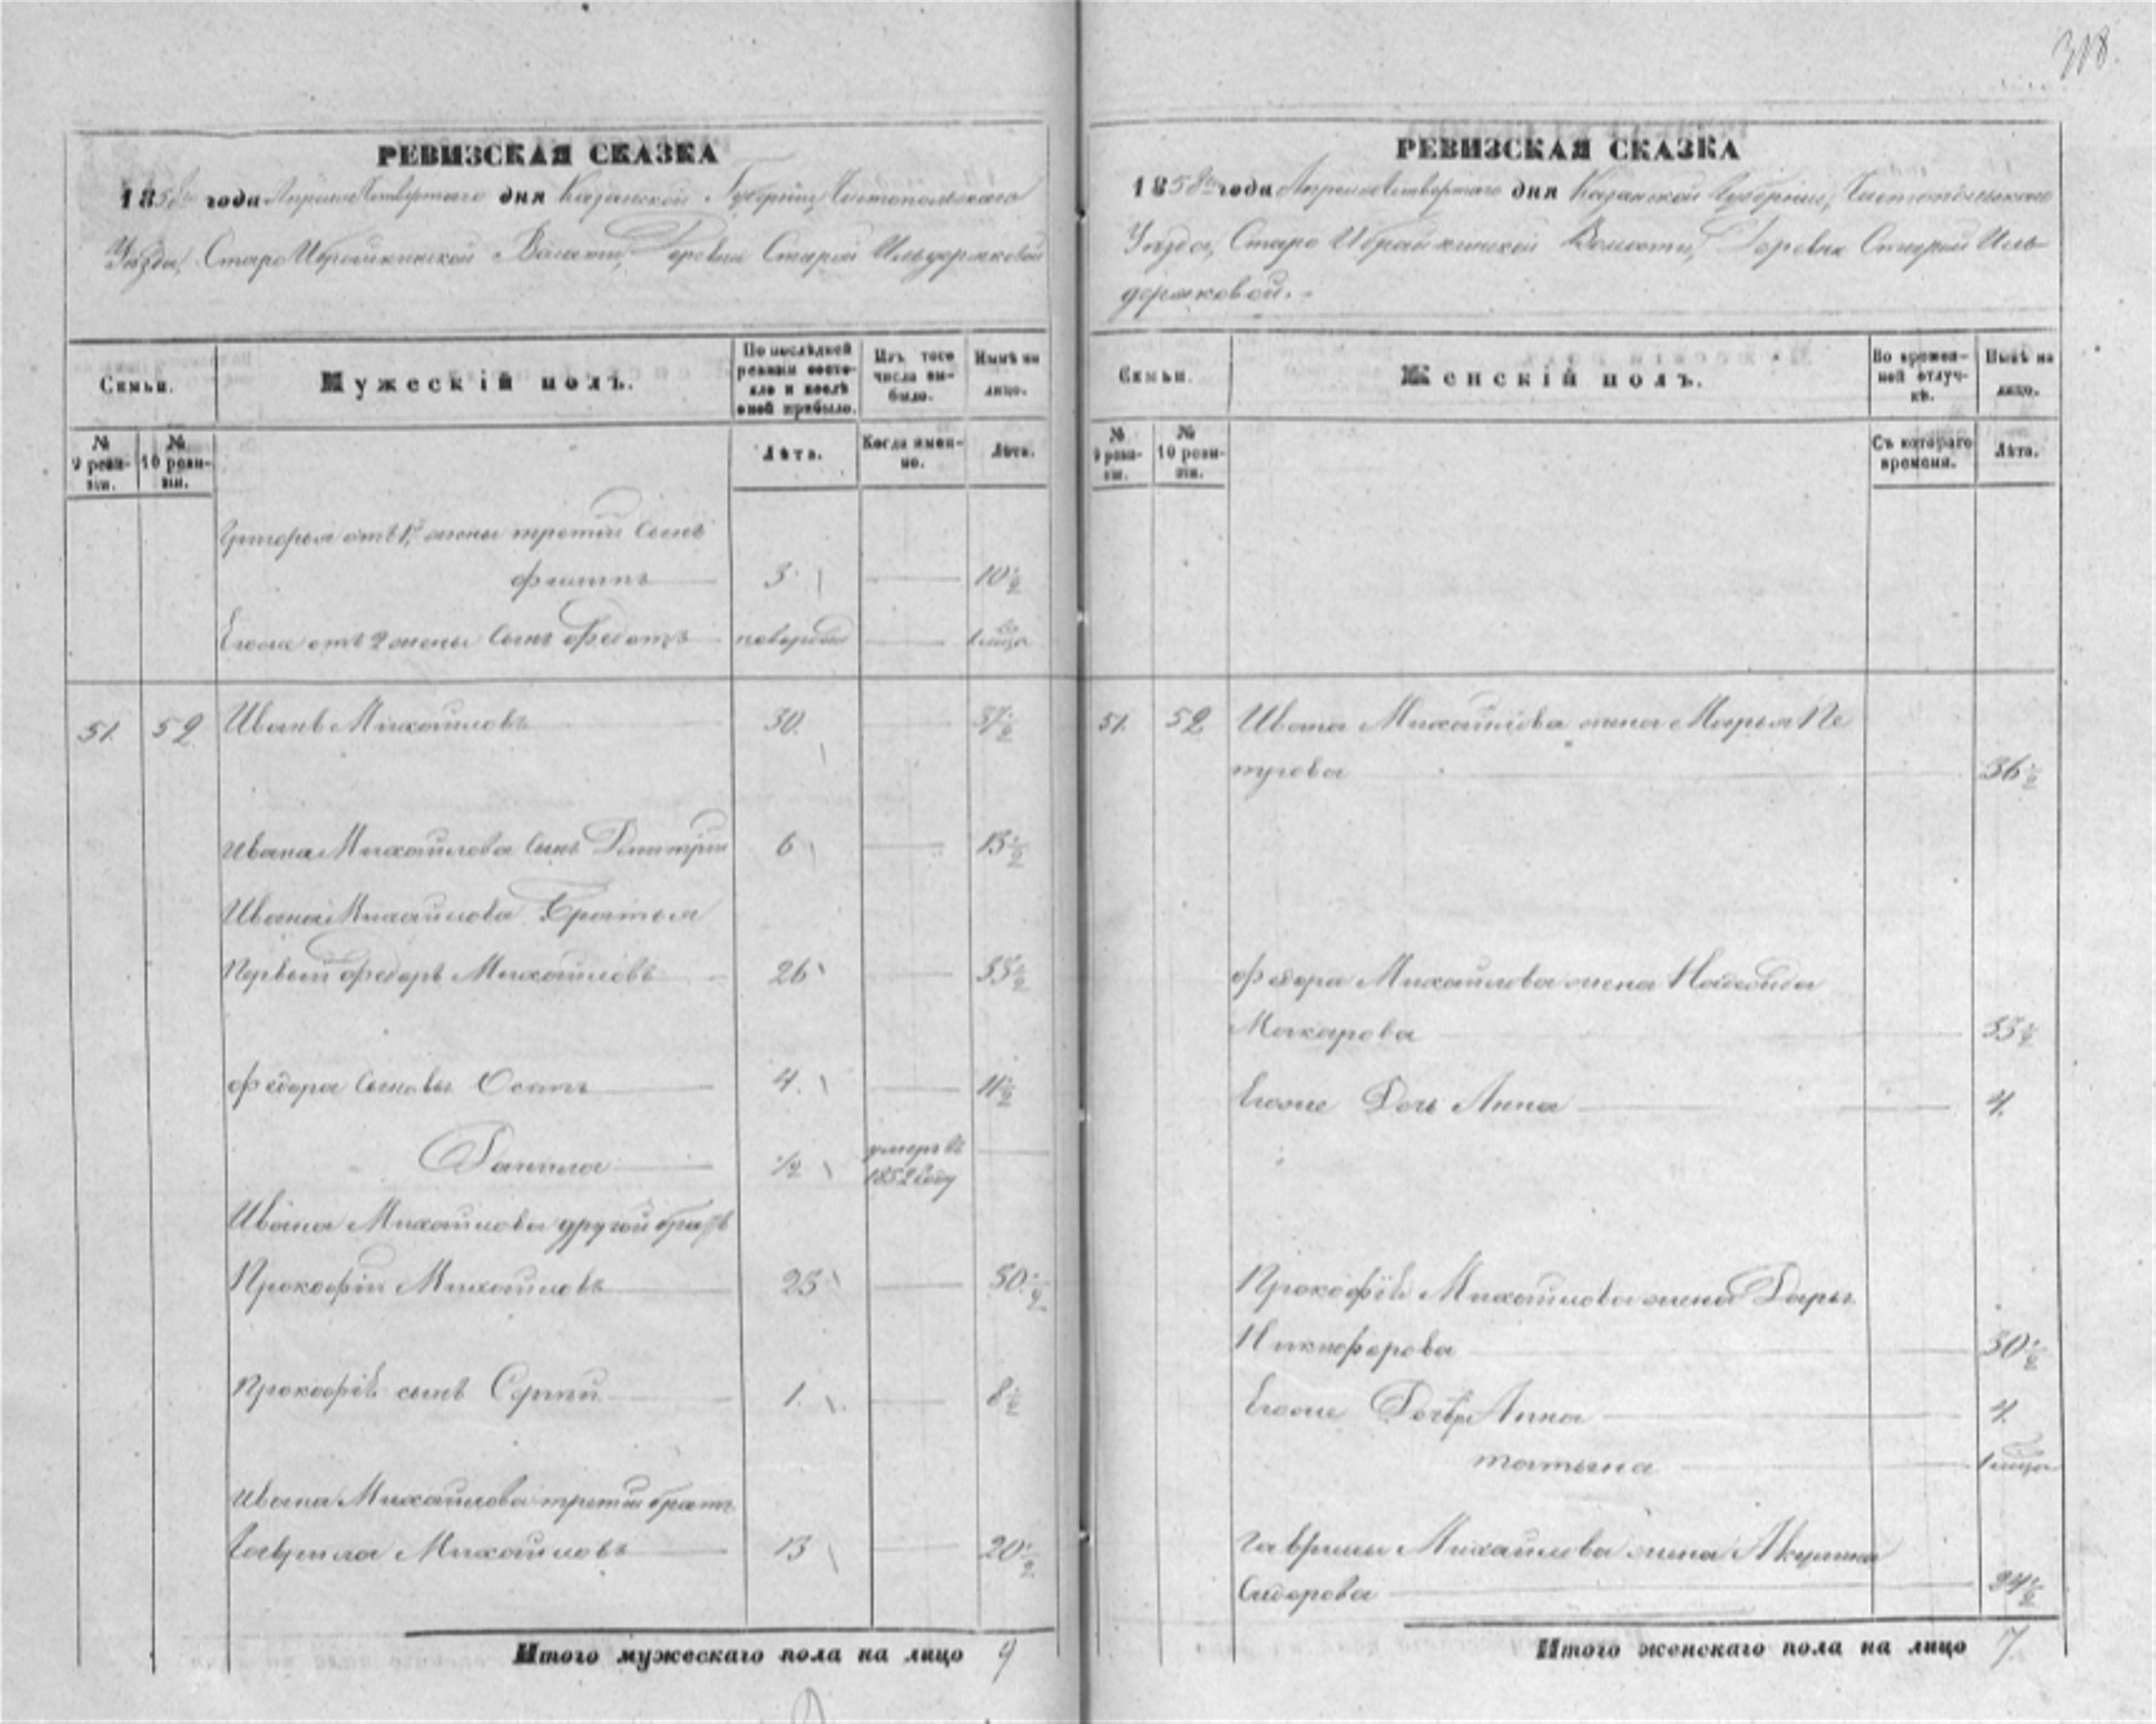 318.
РЕВИЗСКАЯ СКАЗКА
1858го года Апреля Четвертаго дня Казанской Губерніи, Чистопольскаго
Уѣзда, Старо Ибрайкинской Волости, Деревни Старой Ильдеряковой
Семьи.
Мужескій полъ.
По послѣдней ревизіи состояло и послѣ оной прибыло.
Изъ того числа выбыло.
Нынѣ на лицо.
№ 9 ревизіи.
№ 10 ревизіи.
Лѣта.
Когда именно.
Лѣта.
Григорья отъ 1й жены третій сынъ
Филипъ 3 10 1/2
Егоже отъ 2 жены сынъ Федотъ
51. 52 Иванъ Михайловъ 30. 37 1/2
Ивана Михайлова сынъ Дмитрій 6 13 1/2
Ивана Михайлова Братья
Первый Федоръ Михайловъ 26 33 1/2
Федора сыновья Осипъ 4. 11 1/2
Данила 1/2 умеръ въ
1852 году
Ивана Михайлова другой братъ
Прокофій Михайловъ 23 30 1/2
Прокофія сынъ Сергѣй 1. 8 1/2
Ивана Михайлова третій братъ
Гаврила Михайловъ 13 20 1/2
Итого мужескаго пола на лицо 9
РЕВИЗСКАЯ СКАЗКА
1858го года Апреля Четвертаго дня Казанской Губерніи, Чистопольскаго
Уѣзда, Старо Ибрайкинской Волости, Деревни Старой Иль-
деряковой.
Семьи.
Женскій полъ.
Во временной отлучкѣ.
Нынѣ на лицо.
№ 9 ревизіи.
№ 10 ревизіи.
Съ котораго времени.
Лѣта.
51. 52 Ивана Михайлова жена Марья Пе
трова 36 1/2
Федора Михайлова жена Надежда
Макарова 33 1/2
Егоже Дочь Анна 4.
Прокофія Михайлова жена Дарья
Никифорова 30 1/2
Егоже Анна 4.
татьяна
Гаврилы Михайлова жена Акулина
Сидорова 24 1/2
Итого женскаго пола на лицо 7